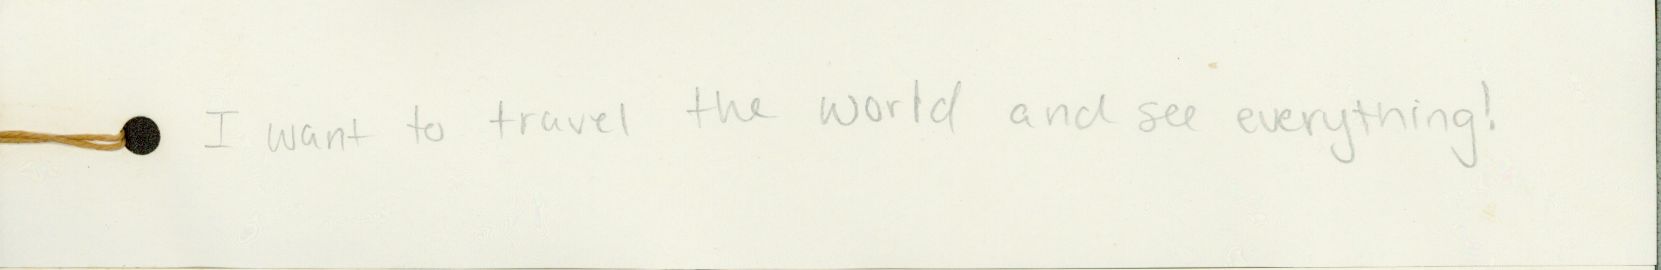 I want to travel the world and see everything!